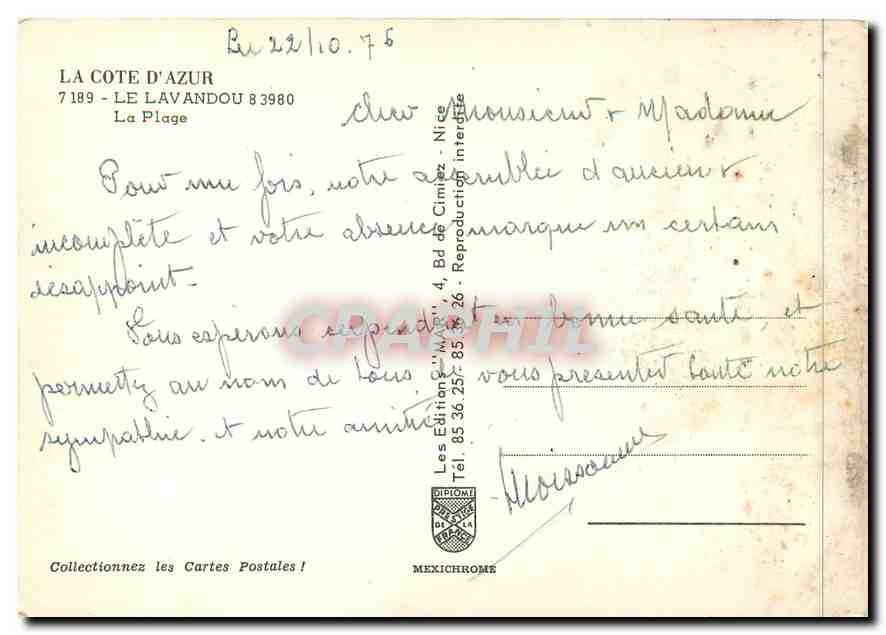 Le 22/10.76
LA COTE D'AZUR
7189 - LE LAVANDOU 83980
La Plage
cher Monsieur & Madame
Pour une fois, notre assemblée d'anciens
incomplète et votre absence marque un certain
désappoint-
Nous espérons cependant en bonne santé, et
permettez au nom de tous, de vous présenter toute notre
sympathie. et notre amitié
CPAPHIL
Les Editions "MAR", 4, Bd de Cimiez - Nice
Tél. 85 36.25 - 85 36 26 - Reproduction interdite
DIPLOME
PRESTIGE
DE LA
FRANCE
Collectionnez les Cartes Postales !
MEXICHROME